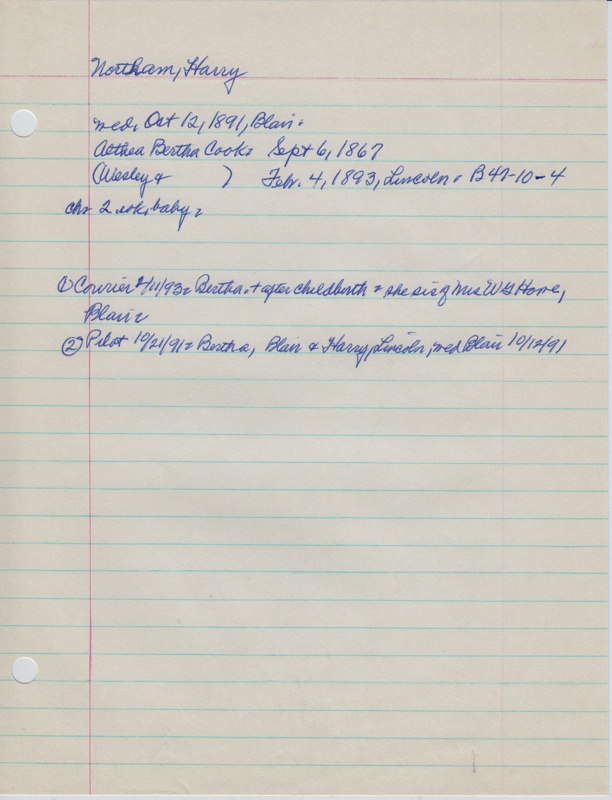 Northam, Harry
med. Oct 12, 1891, Blair.
Althea Bertha Cook. Sept 6, 1867
(Wesley & ) Febr. 4, 1893, Lincoln. B47-10-4
chr 2 wk. baby.
① Courier 2/11/93. Bertha. + after childbirth. she sis of Mrs W G Horne,
Blair.
② Pilot 10/21/91. Bertha, Blair & Harry, Lincoln, med Blair 10/12/91